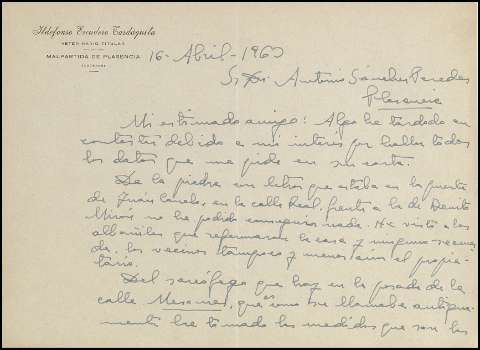 Ildefonso Escudero Tardáguila
VETERINARIO TITULAR
MALPARTIDA DE PLASENCIA
(CACERES)
16-Abril-1963
Sr Dn Antonio Sánchez Paredes
Plasencia
Mi estimado amigo: Algo he tardado en
contestar debido a mi interés por hallar todos
los datos que me pide en su carta.
De la piedra con letras que estaba en la puerta
de Juán Canelo, en la calle Real, frente a la de Benito
no he podido conseguir nada. He visto a los
albañiles que reformaron la casa y ninguno recuer-
da, los vecinos tampoco y menos aún el propie-
tario.
Del sarcófago que hay en la posada de la
calle Mesones, que es como se llamaba antigua-
mente he tomado las medidas que son las